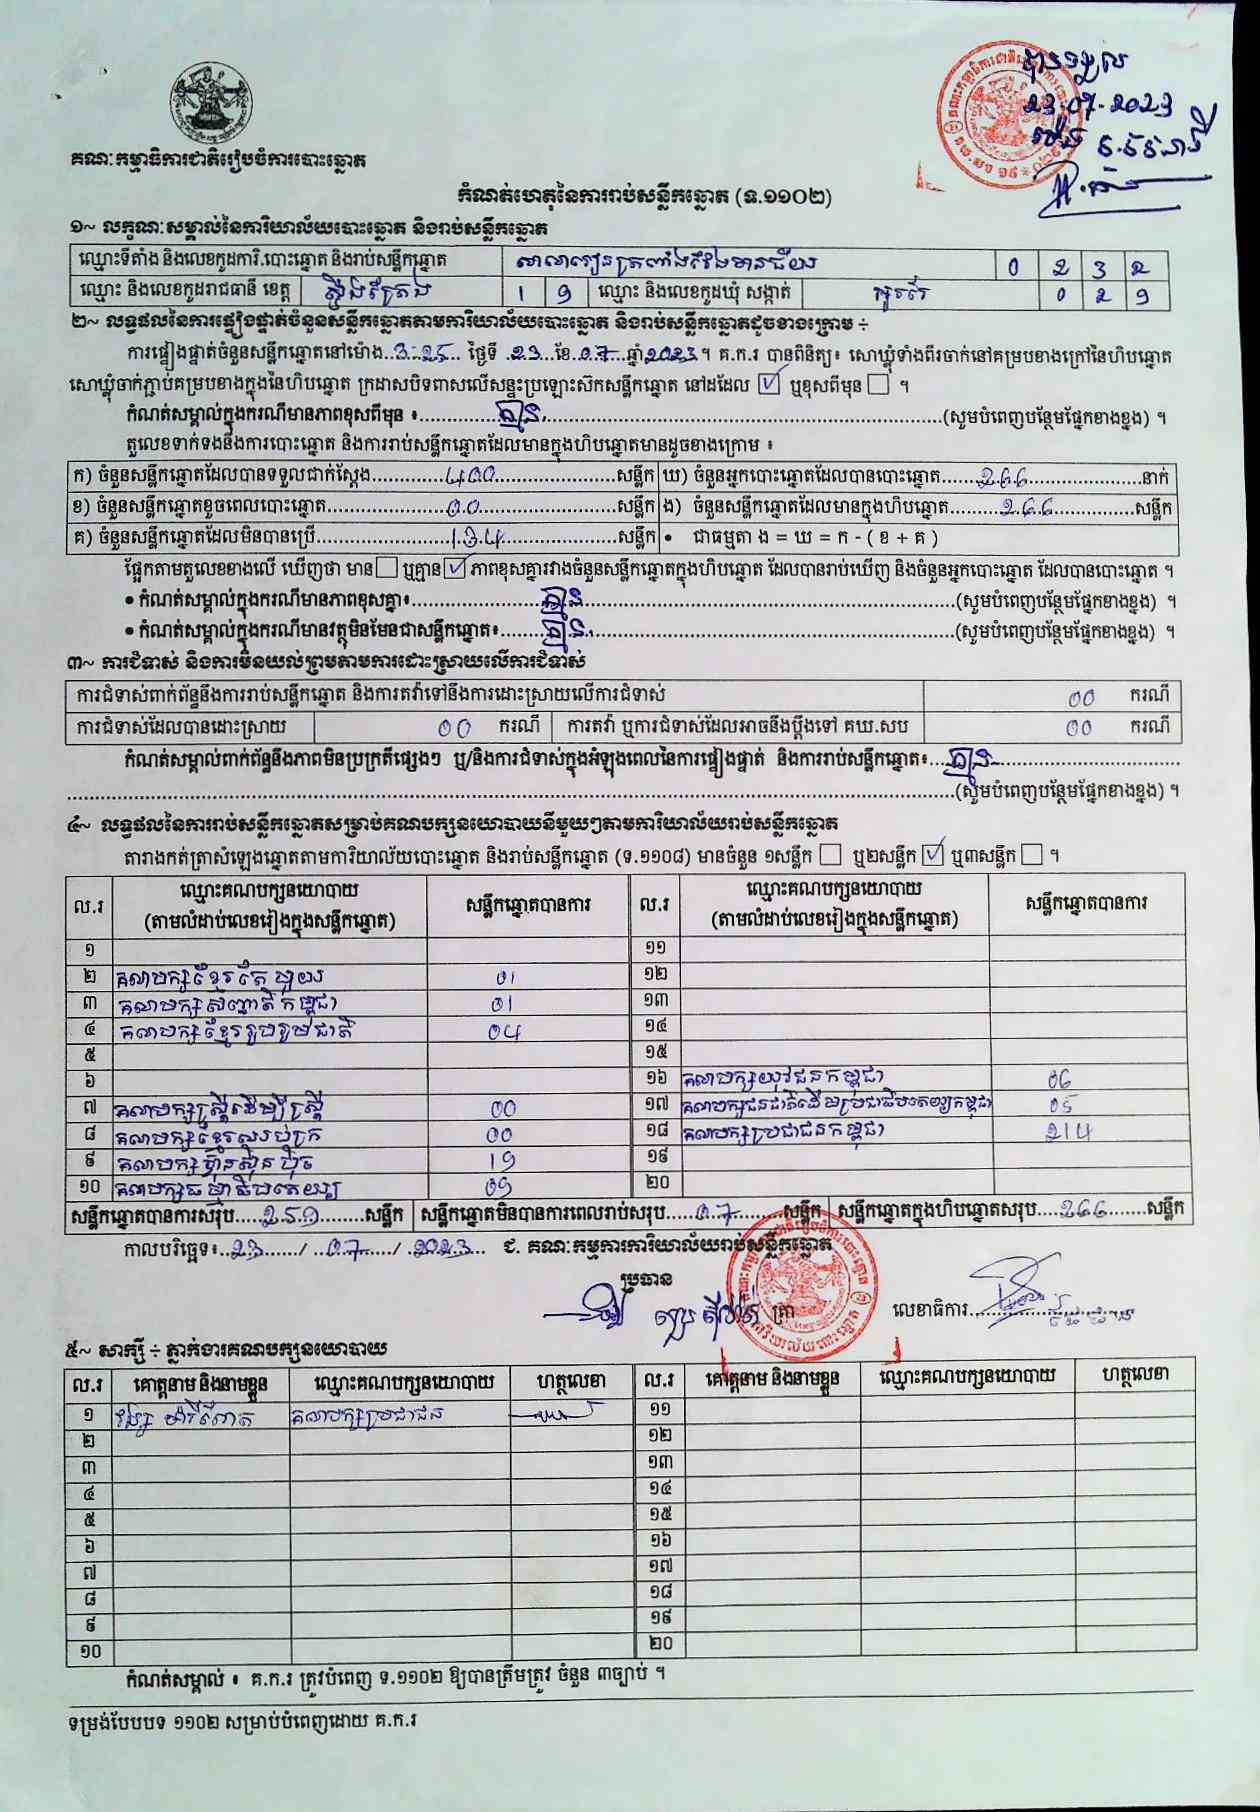 បានទទួល
23-07-2023
គណៈកម្មាធិការជាតិរៀបចំការបោះឆ្នោត
កំណត់ហេតុនៃការរាប់សន្លឹកឆ្នោត (ទ.១១០២)
១~ លក្ខណៈសម្គាល់នៃការិយាល័យបោះឆ្នោត និងរាប់សន្លឹកឆ្នោត
ឈ្មោះទីតាំង និងលេខកូដការិ.បោះឆ្នោត និងរាប់សន្លឹកឆ្នោត សាលារៀនត្រពាំងវែងមានជ័យ 0 2 3 2
ឈ្មោះ និងលេខកូដរាជធានី ខេត្ត ស្ទឹងត្រែង 1 9 ឈ្មោះ និងលេខកូដឃុំ សង្កាត់ 0 2 9
២~ លទ្ធផលនៃការផ្ទៀងផ្ទាត់ចំនួនសន្លឹកឆ្នោតតាមការិយាល័យបោះឆ្នោត និងរាប់សន្លឹកឆ្នោតដូចខាងក្រោម ៖
ការផ្ទៀងផ្ទាត់ចំនួនសន្លឹកឆ្នោតនៅម៉ោង 3:25 ថ្ងៃទី 23 ខែ 07 ឆ្នាំ 2023 ។ គ.ក.រ បានពិនិត្យ៖ សោឃ្លុំទាំងពីរចាក់នៅគម្របខាងក្រៅនៃហិបឆ្នោត
សោឃ្លុំចាក់ភ្ជាប់គម្របខាងក្នុងនៃហិបឆ្នោត ក្រដាសបិទពាសលើសន្ទះប្រឡោះស៊កសន្លឹកឆ្នោត នៅដដែល ☑ ឬខុសពីមុន ☐ ។
កំណត់សម្គាល់ក្នុងករណីមានភាពខុសពីមុន ៖ គ្មាន (សូមបំពេញបន្ថែមផ្នែកខាងខ្នង) ។
តួលេខទាក់ទងនឹងការបោះឆ្នោត និងការរាប់សន្លឹកឆ្នោតដែលមានក្នុងហិបឆ្នោតមានដូចខាងក្រោម ៖
ក) ចំនួនសន្លឹកឆ្នោតដែលបានទទួលជាក់ស្តែង 400 សន្លឹក ឃ) ចំនួនអ្នកបោះឆ្នោតដែលបានបោះឆ្នោត 266 នាក់
ខ) ចំនួនសន្លឹកឆ្នោតខូចពេលបោះឆ្នោត 00 សន្លឹក ង) ចំនួនសន្លឹកឆ្នោតដែលមានក្នុងហិបឆ្នោត 266 សន្លឹក
គ) ចំនួនសន្លឹកឆ្នោតដែលមិនបានប្រើ 134 សន្លឹក • ជាធម្មតា ង = ឃ = ក - ( ខ + គ )
ផ្អែកតាមតួលេខខាងលើ ឃើញថា មាន ☐ ឬគ្មាន ☑ ភាពខុសគ្នារវាងចំនួនសន្លឹកឆ្នោតក្នុងហិបឆ្នោត ដែលបានរាប់ឃើញ និងចំនួនអ្នកបោះឆ្នោត ដែលបានបោះឆ្នោត ។
• កំណត់សម្គាល់ក្នុងករណីមានភាពខុសគ្នា៖ គ្មាន (សូមបំពេញបន្ថែមផ្នែកខាងខ្នង) ។
• កំណត់សម្គាល់ក្នុងករណីមានវត្ថុមិនមែនជាសន្លឹកឆ្នោត៖ គ្មាន (សូមបំពេញបន្ថែមផ្នែកខាងខ្នង) ។
៣~ ការជំទាស់ និងការមិនយល់ព្រមតាមការដោះស្រាយលើការជំទាស់
ការជំទាស់ពាក់ព័ន្ធនឹងការរាប់សន្លឹកឆ្នោត និងការតវ៉ាទៅនឹងការដោះស្រាយលើការជំទាស់ 00 ករណី
ការជំទាស់ដែលបានដោះស្រាយ 00 ករណី ការតវ៉ា ឬការជំទាស់ដែលអាចនឹងប្តឹងទៅ គឃ.សប 00 ករណី
កំណត់សម្គាល់ពាក់ព័ន្ធនឹងភាពមិនប្រក្រតីផ្សេងៗ ឬ/និងការជំទាស់ក្នុងអំឡុងពេលនៃការផ្ទៀងផ្ទាត់ និងការរាប់សន្លឹកឆ្នោត៖ គ្មាន
(សូមបំពេញបន្ថែមផ្នែកខាងខ្នង) ។
៤~ លទ្ធផលនៃការរាប់សន្លឹកឆ្នោតសម្រាប់គណបក្សនយោបាយនីមួយៗតាមការិយាល័យរាប់សន្លឹកឆ្នោត
តារាងកត់ត្រាសំឡេងឆ្នោតតាមការិយាល័យបោះឆ្នោត និងរាប់សន្លឹកឆ្នោត (ទ.១១០៨) មានចំនួន ១សន្លឹក ☐ ឬ២សន្លឹក ☑ ឬ៣សន្លឹក ☐ ។
ល.រ ឈ្មោះគណបក្សនយោបាយ (តាមលំដាប់លេខរៀងក្នុងសន្លឹកឆ្នោត) សន្លឹកឆ្នោតបានការ ល.រ ឈ្មោះគណបក្សនយោបាយ (តាមលំដាប់លេខរៀងក្នុងសន្លឹកឆ្នោត) សន្លឹកឆ្នោតបានការ
១ ១១
២ គណបក្សខ្មែរតែមួយ 01 ១២
៣ គណបក្សសញ្ជាតិកម្ពុជា 01 ១៣
៤ គណបក្សខ្មែររួបរួមជាតិ 04 ១៤
៥ ១៥
៦ ១៦ គណបក្សយុវជនកម្ពុជា 06
៧ គណបក្សស្ត្រីដើម្បីស្ត្រី 00 ១៧ គណបក្សជនជាតិដើមប្រជាធិបតេយ្យកម្ពុជា 05
៨ គណបក្សខ្មែរឈប់ក្រ 00 ១៨ គណបក្សប្រជាជនកម្ពុជា 214
៩ គណបក្សហ៊្វុនស៊ិនប៉ិច 19 ១៩
១០ គណបក្សធម្មាធិបតេយ្យ 09 ២០
សន្លឹកឆ្នោតបានការសរុប 259 សន្លឹក សន្លឹកឆ្នោតមិនបានការពេលរាប់សរុប 07 សន្លឹក សន្លឹកឆ្នោតក្នុងហិបឆ្នោតសរុប 266 សន្លឹក
កាលបរិច្ឆេទ៖ 23 / 07 / 2023 ជ. គណៈកម្មការការិយាល័យរាប់សន្លឹកឆ្នោត
ប្រធាន
ត្រា លេខាធិការ
៥~ សាក្សី ៖ ភ្នាក់ងារគណបក្សនយោបាយ
ល.រ គោត្តនាម និងនាមខ្លួន ឈ្មោះគណបក្សនយោបាយ ហត្ថលេខា ល.រ គោត្តនាម និងនាមខ្លួន ឈ្មោះគណបក្សនយោបាយ ហត្ថលេខា
១ គណបក្សប្រជាជន ១១
២ ១២
៣ ១៣
៤ ១៤
៥ ១៥
៦ ១៦
៧ ១៧
៨ ១៨
៩ ១៩
១០ ២០
កំណត់សម្គាល់ ៖ គ.ក.រ ត្រូវបំពេញ ទ.១១០២ ឱ្យបានត្រឹមត្រូវ ចំនួន ៣ច្បាប់ ។
ទម្រង់បែបបទ ១១០២ សម្រាប់បំពេញដោយ គ.ក.រ